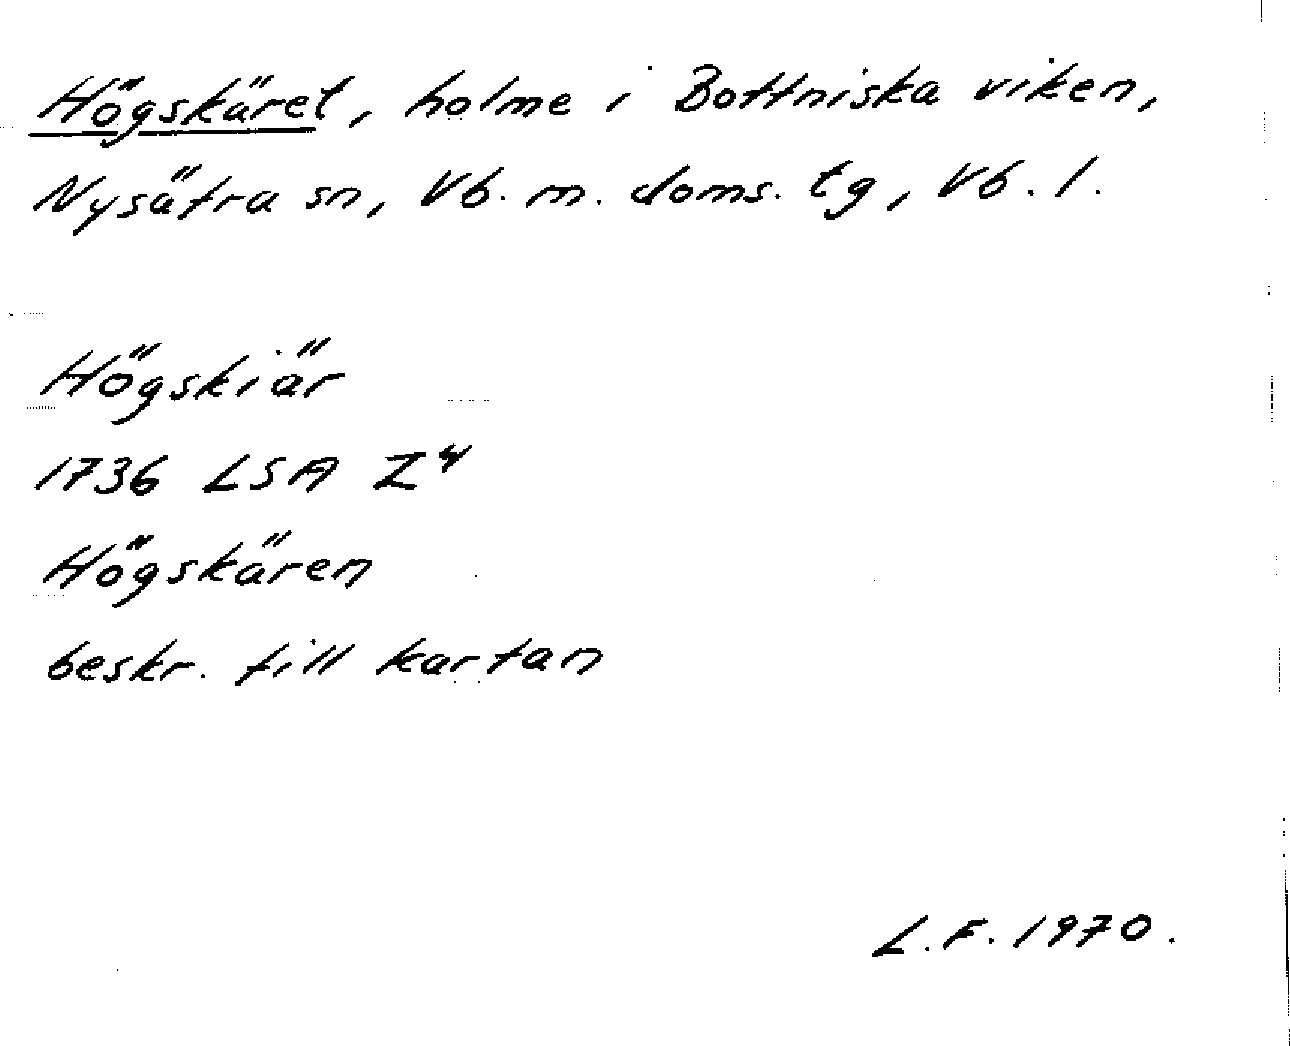 Högskäret, holme i Bottniska viken,
Nysätra sn, Vb. m. doms. tg, Vb. l.
Högskiär
1736 LSA Z⁴
Högskären
beskr. till kartan
L.F. 1970.